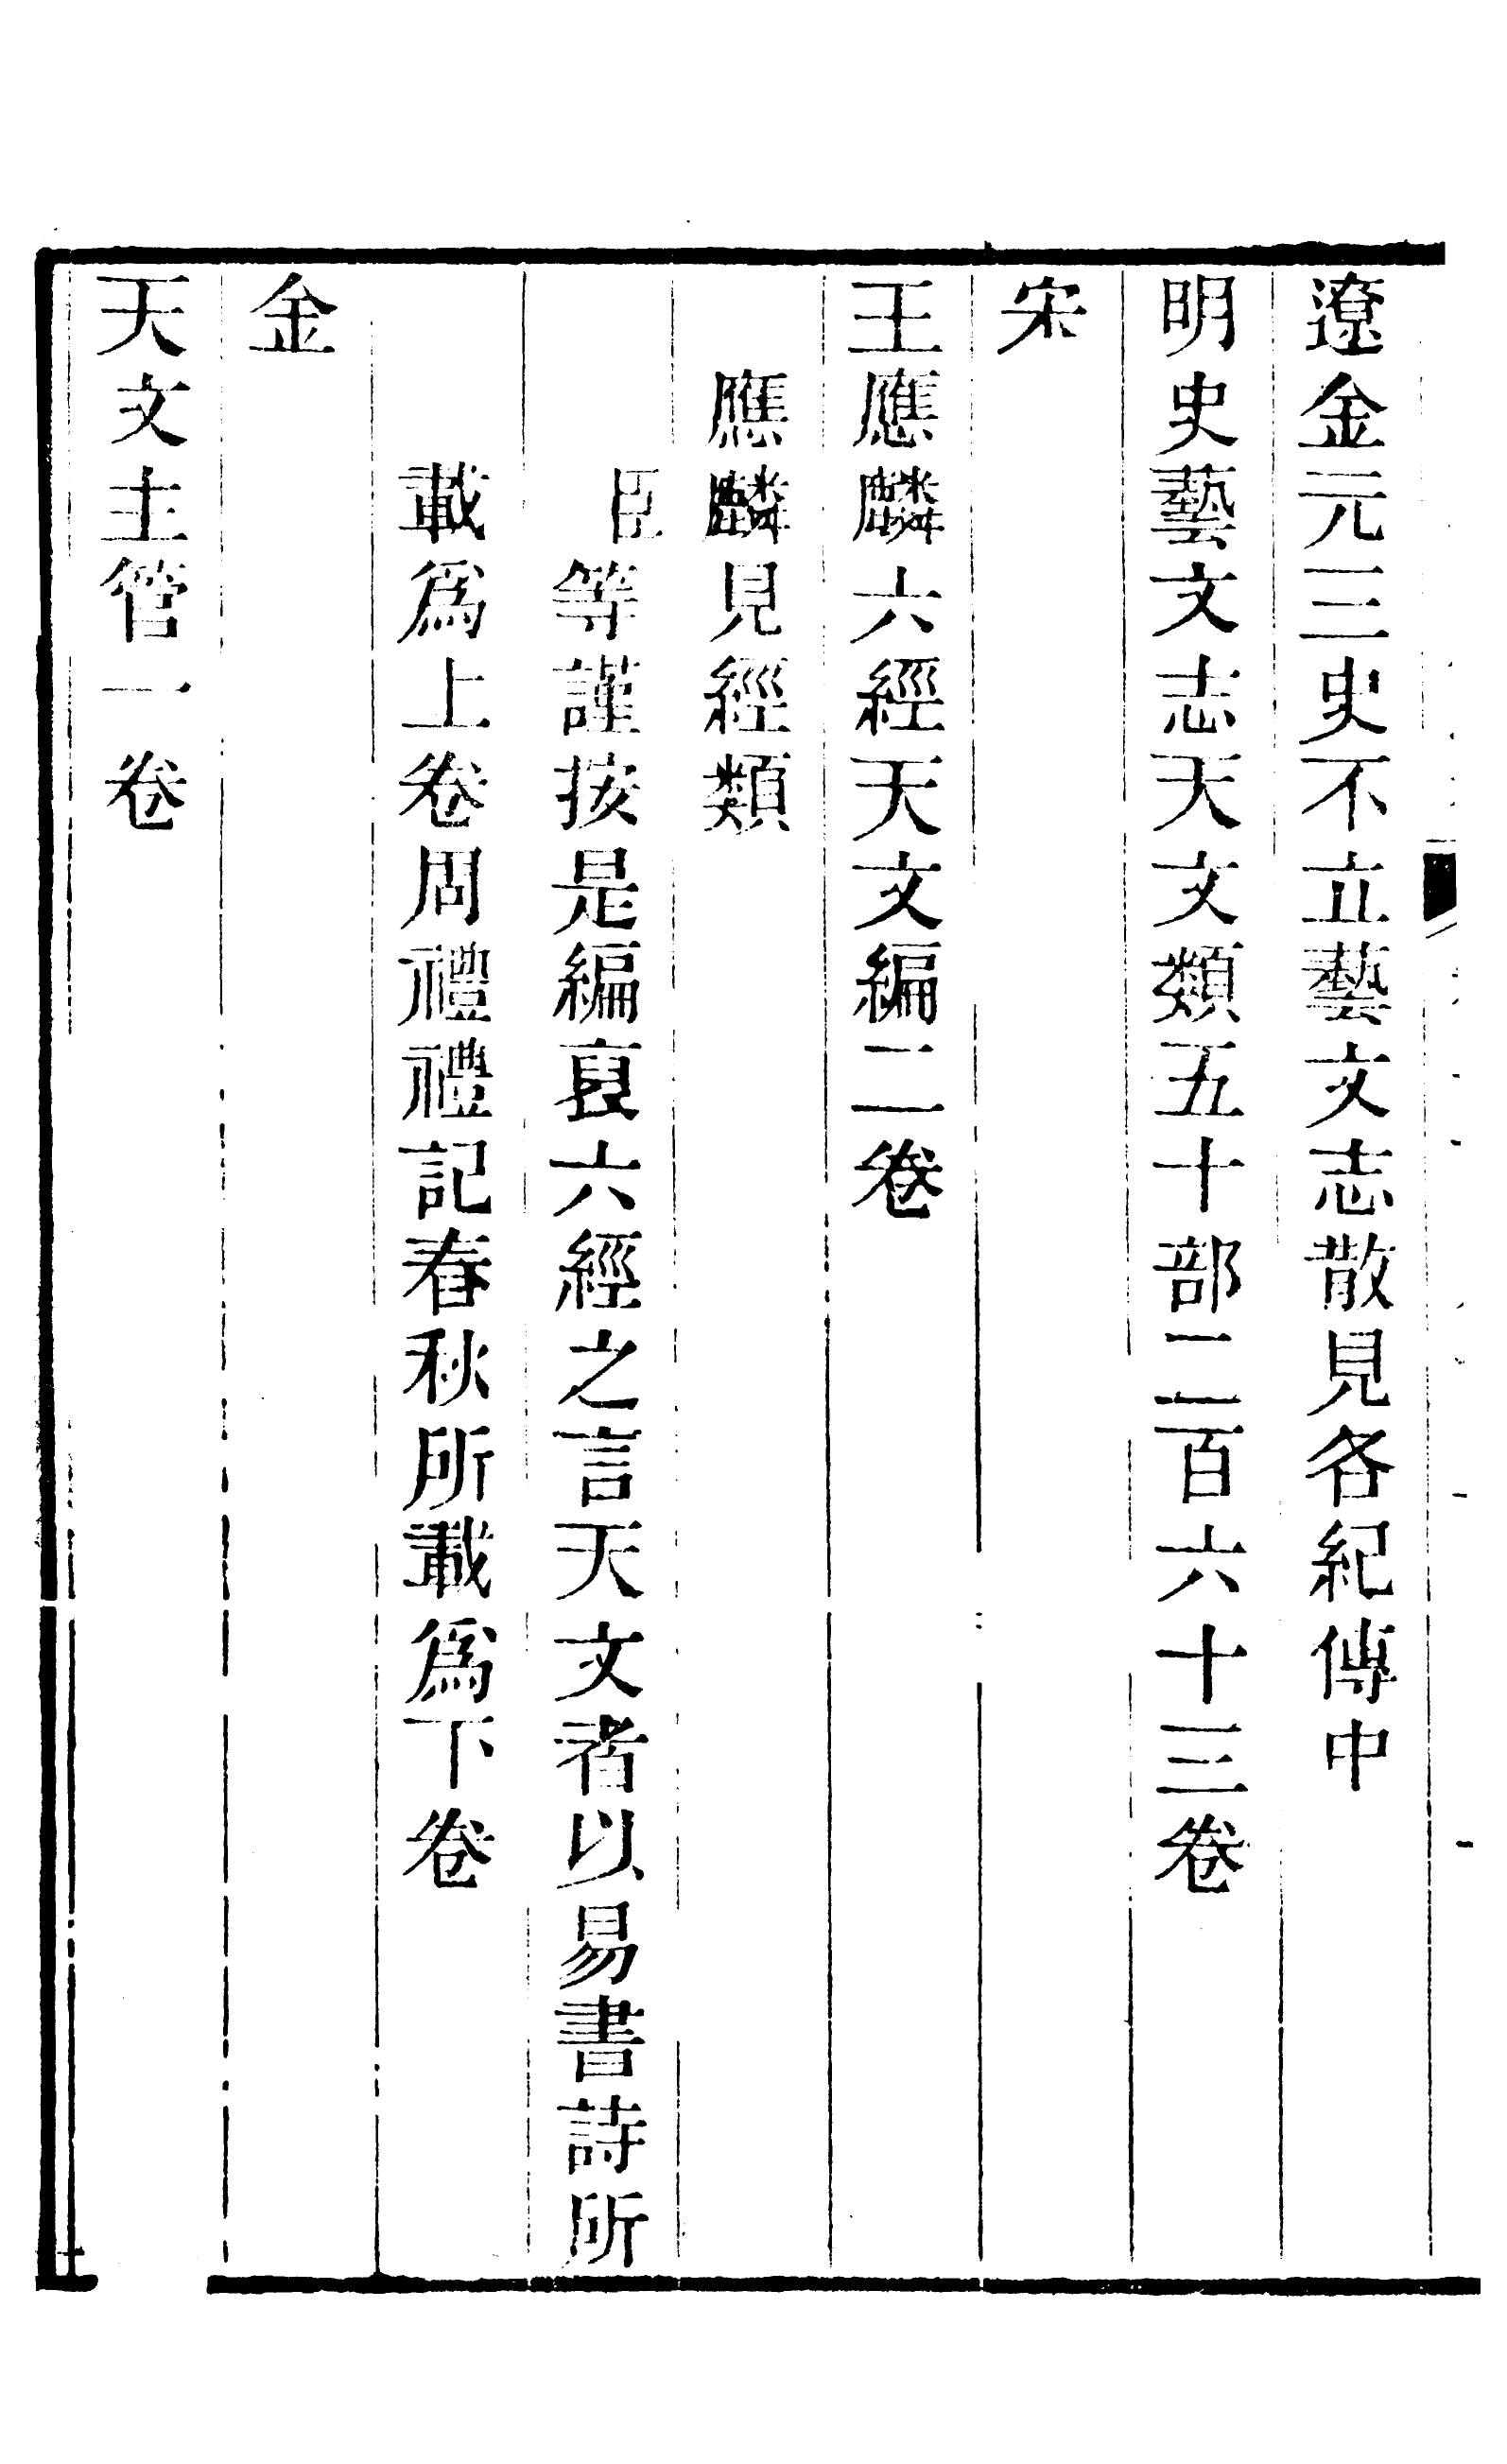 遼金元三史不立藝文志散見各紀傳中
明史藝文志天文類五十部二百六十三卷
宋
王應麟六經天文編二卷
應麟見經類
臣等謹按是編裒六經之言天文者以易書詩所
載爲上卷周禮禮記春秋所載爲下卷
金
天文主管一卷